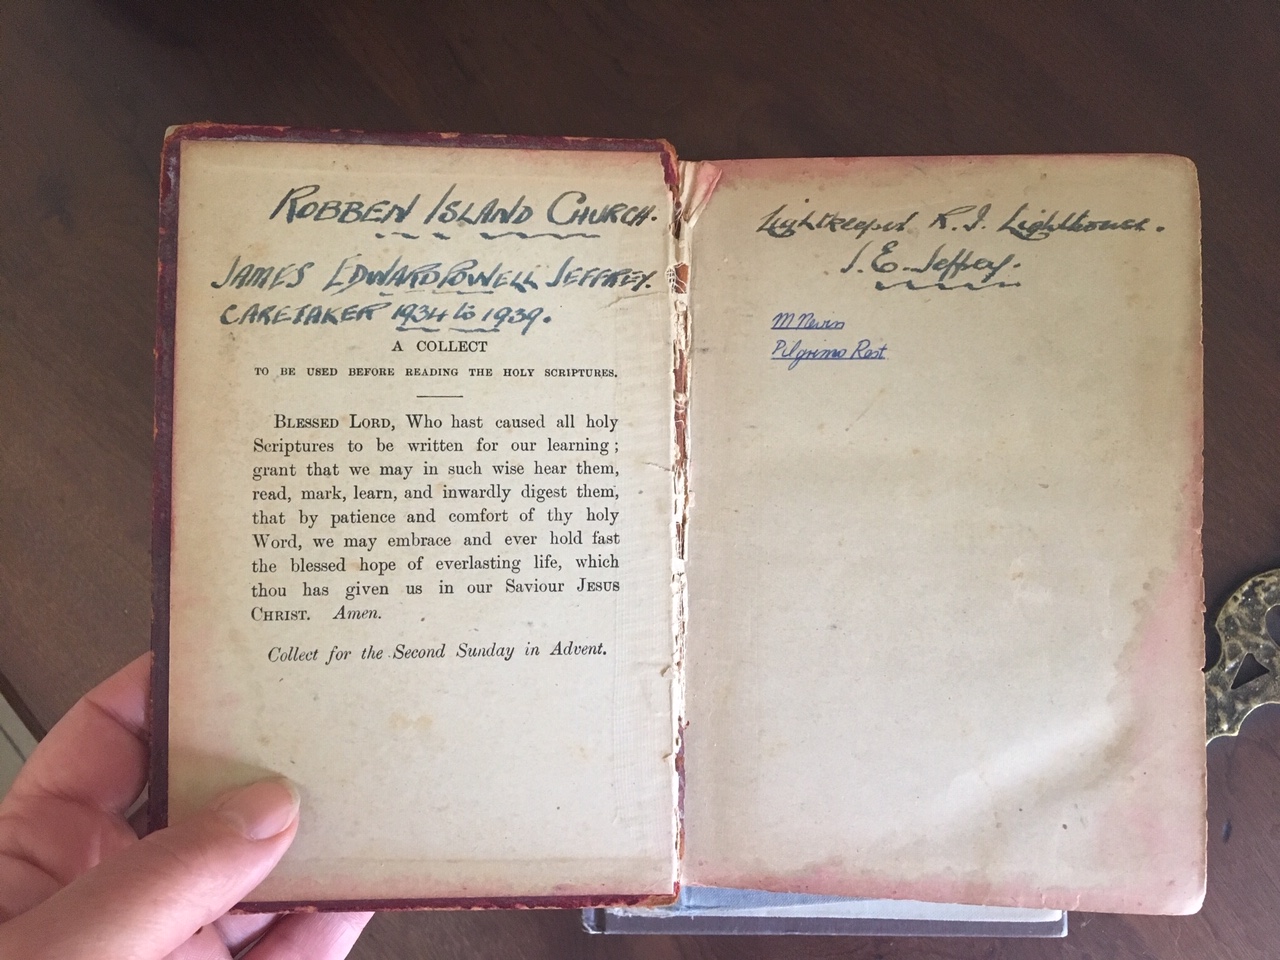 ROBBEN ISLAND CHURCH.
JAMES EDWARD POWELL JEFFREY.
CARETAKER 1934 to 1939.
A COLLECT
TO BE USED BEFORE READING THE HOLY SCRIPTURES.
BLESSED LORD, Who hast caused all holy
Scriptures to be written for our learning ;
grant that we may in such wise hear them,
read, mark, learn, and inwardly digest them,
that by patience and comfort of thy holy
Word, we may embrace and ever hold fast
the blessed hope of everlasting life, which
thou has given us in our Saviour JESUS
CHRIST. Amen.
Collect for the Second Sunday in Advent.
Lightkeeper R. I. Lighthouse.
J. E. Jeffrey.
M Nevin
Pilgrims Rest